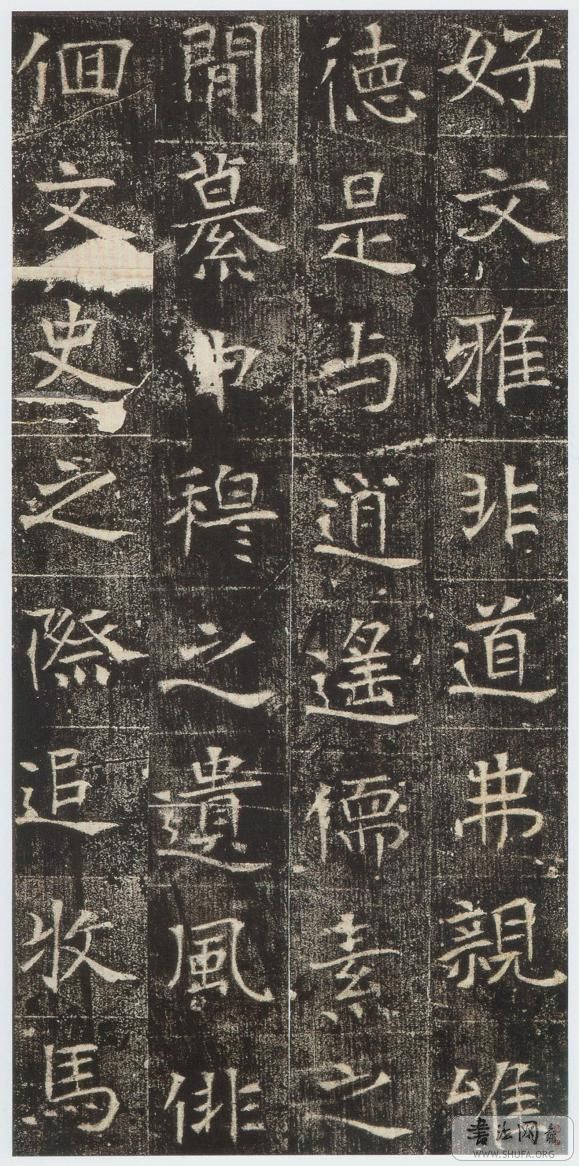 好文雅非道弗親唯
徳是与逍遥儒素之
閒慕申穆之遺風俳
佪文史之際追收馬
書法网
WWW.SHUFA.ORG